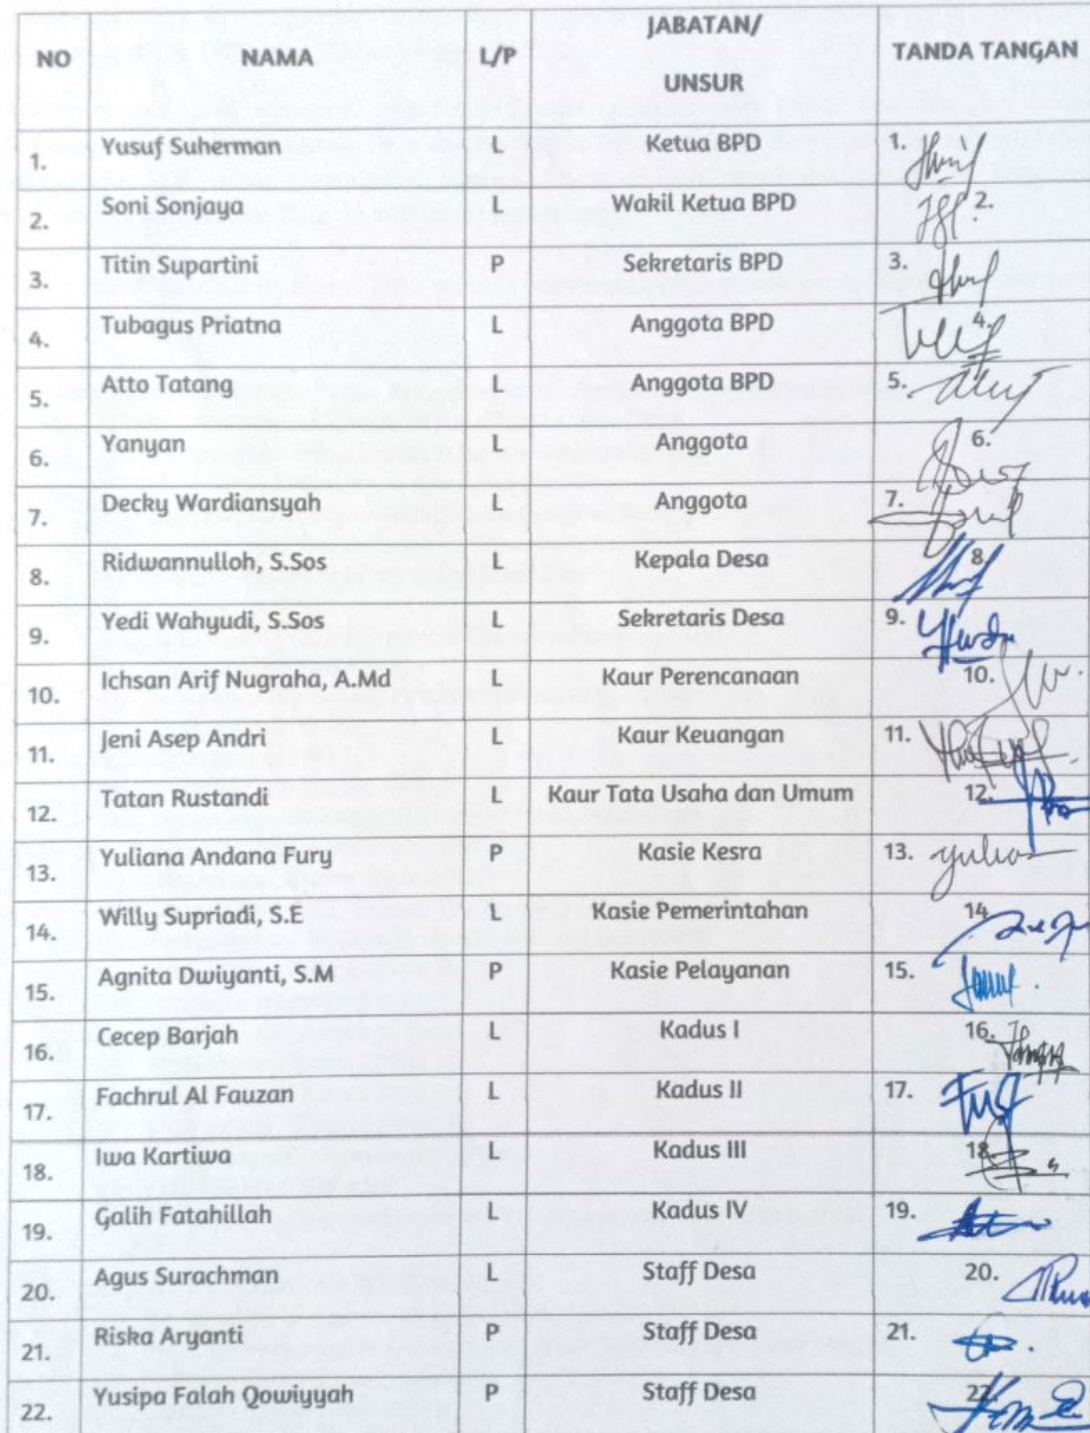 NO NAMA L/P JABATAN/ UNSUR TANDA TANGAN
1. Yusuf Suherman L Ketua BPD 1.
2. Soni Sonjaya L Wakil Ketua BPD 2.
3. Titin Supartini P Sekretaris BPD 3.
4. Tubagus Priatna L Anggota BPD 4.
5. Atto Tatang L Anggota BPD 5.
6. Yanyan L Anggota 6.
7. Decky Wardiansyah L Anggota 7.
8. Ridwannulloh, S.Sos L Kepala Desa 8.
9. Yedi Wahyudi, S.Sos L Sekretaris Desa 9.
10. Ichsan Arif Nugraha, A.Md L Kaur Perencanaan 10.
11. Jeni Asep Andri L Kaur Keuangan 11.
12. Tatan Rustandi L Kaur Tata Usaha dan Umum 12.
13. Yuliana Andana Fury P Kasie Kesra 13.
14. Willy Supriadi, S.E L Kasie Pemerintahan 14.
15. Agnita Dwiyanti, S.M P Kasie Pelayanan 15.
16. Cecep Barjah L Kadus I 16.
17. Fachrul Al Fauzan L Kadus II 17.
18. Iwa Kartiwa L Kadus III 18.
19. Galih Fatahillah L Kadus IV 19.
20. Agus Surachman L Staff Desa 20.
21. Riska Aryanti P Staff Desa 21.
22. Yusipa Falah Qowiyyah P Staff Desa 22.